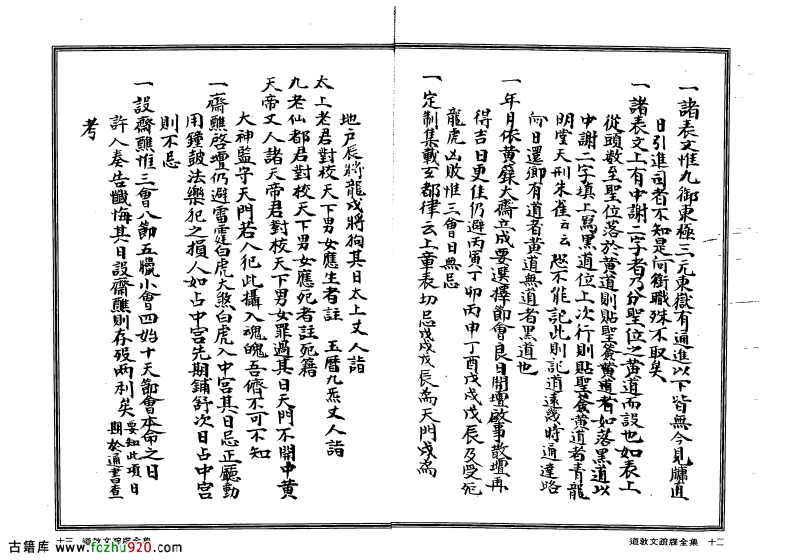 一諸表文惟九御東極三元東嶽有通進以下皆無今見牘直
日引進司者不知是何銜職殊不取矣
一諸表文上有中謝二字者乃分聖位之黃道而設也如表上
從頭数至聖位落於黃道則貼聖簽黃道者如落黑道以
中謝二字填上寫黑道位上次行則貼聖簽黃道者青龍
明堂天刑朱雀云云恐不能記此則記道遠幾時通達路
向日還卿有道者黃道無道者黑道也
一年月依黃籙大齋立成要選擇節會良日開壇啟事散壇再
得吉日更佳仍避丙寅丁卯丙申丁酉戊戌戊辰及受死
龍虎凶敗惟三會日無忌
一定制集載玄都律云上章表切忌戊戌戊辰為天門戌為
地户辰將龍戌將狗其日太上丈人詣
太上老君對校天下男女應生者註 玉曆九炁丈人詣
九老仙都君對校天下男女應死者註死籍
天帝丈人諸天帝君對校天下男女罪過其日天門不開中黃
大神監守天門若人犯此攝入魂魄吾儕不可不知
一齋醮啓壇仍避雷霆白虎大煞白虎入中宮其日忌正廳動
用鐘鼓法樂犯之損人如占中宮先期鋪舒次日占中宮
則不忌
一設齋醮惟三會八節五臘小會四始十天節會本命之日
許人奏告懺悔其日設齋醮則存歿兩利矣要知此項日期於通書查
考
道教文疏牒全集 十二
十三 道教文疏牒全集
古籍库 www.fozhu920.com